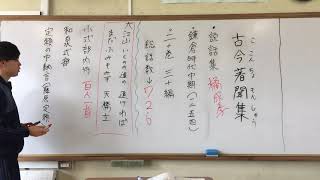 古今著聞集
こ こん ちょ もん じゅう
・説話集 橘成季
・鎌倉時代中期(一二五四)
・二十巻 三十編
総話数→726
大江山いくのの道の遠ければ
まだふみもみず 天橋立
小式部内侍 百人一首
和泉式部
定頼の中納言(藤原定頼)